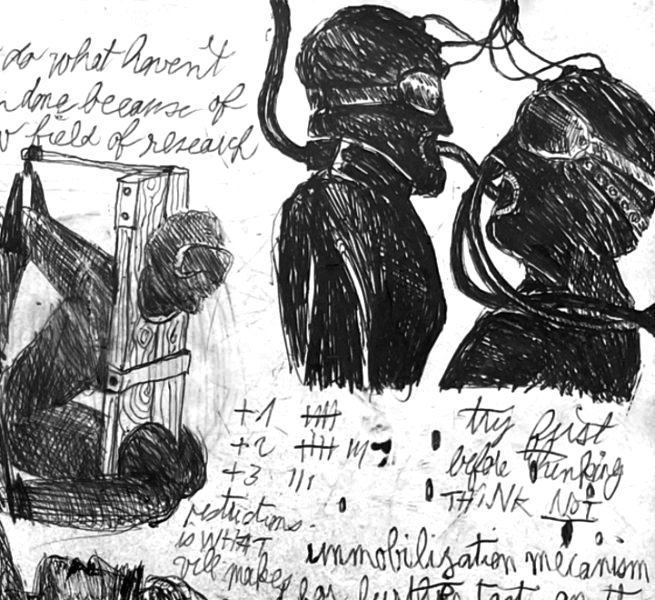 do what haven't
done because of
field of research
+1
+2
+3
try first
before thinking
THINK NOT
restrictions.
is WHAT
will makes
immobilisation mecanism